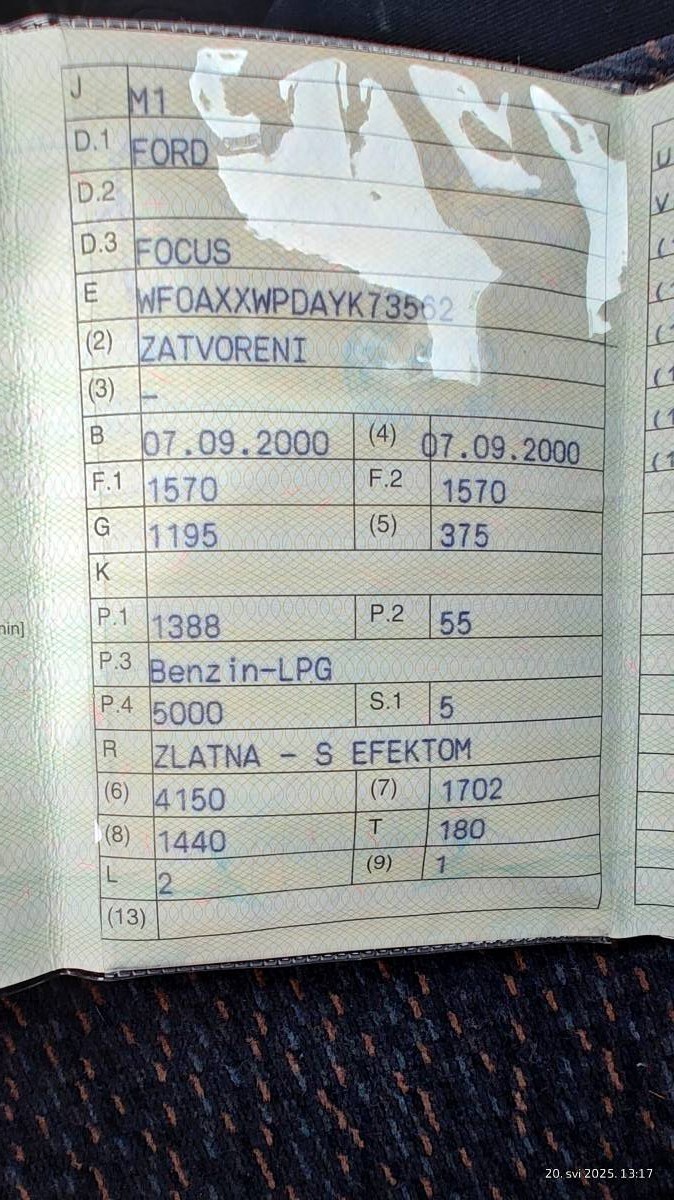 J M1
D.1 FORD
D.2
D.3 FOCUS
E WF0AXXWPDAYK73562
(2) ZATVORENI
(3) –
B 07.09.2000 (4) 07.09.2000
F.1 1570 F.2 1570
G 1195 (5) 375
K
P.1 1388 P.2 55
P.3 Benzin-LPG
P.4 5000 S.1 5
R ZLATNA - S EFEKTOM
(6) 4150 (7) 1702
(8) 1440 T 180
L 2 (9) 1
(13)
min]
U
V
20. svi 2025. 13:17